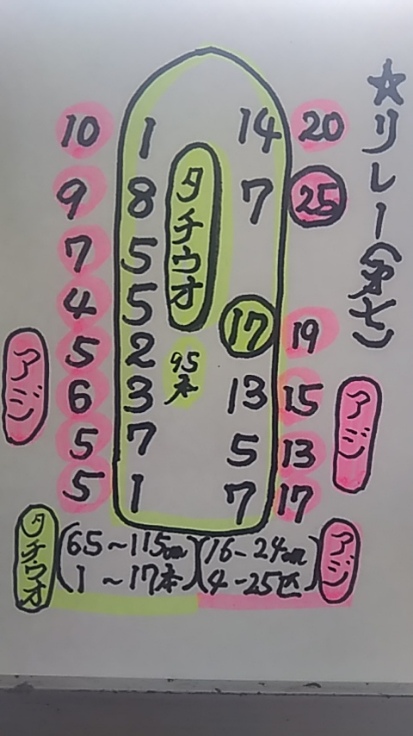 ☆リレー(弁七)
10 1 14 20
9 8 タチウオ 7 25
7 5
4 5 17 19
アジ 5 2 95本
6 3 13 15 アジ
5 7 5 13
5 1 7 17
タチウオ (65~115cm)(16-24cm) アジ
(1~17本)(4-25匹)